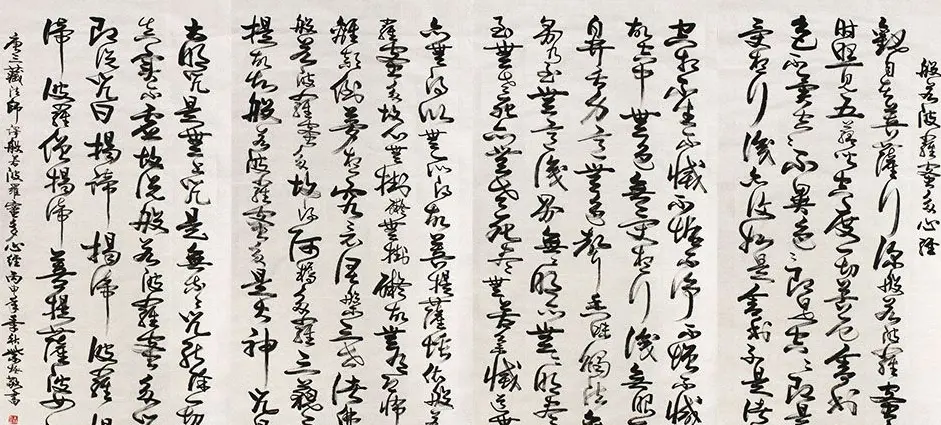 般若波羅蜜多心經
觀自在菩薩行深般若波羅蜜
時照見五蘊皆空度一切苦厄舍利
色不異空〻不異色〻即是空〻即是
受想行識亦復如是舍利子是諸
空相不生不滅不垢不淨不增不減
故空中無色無受想行識無眼
鼻舌身意無色聲香味觸法無
界乃至無意識界無〻明亦無〻明盡
至無老死亦無老死盡無苦集滅道無
亦無得以無所得故菩提薩埵依般若
羅蜜多故心無掛礙無掛礙故無有怖
離顛倒夢想究竟涅槃三世諸佛
般若波羅蜜多故得阿耨多羅三藐
提故知般若波羅蜜多是大神咒
大明咒是無上咒是無等〻咒能除一切
真實不虛故說般若波羅蜜多
即說咒曰揭諦揭諦波羅揭
諦波羅僧揭諦菩提薩婆
唐三藏法師譯般若波羅蜜多心經丙申年季秋敬書